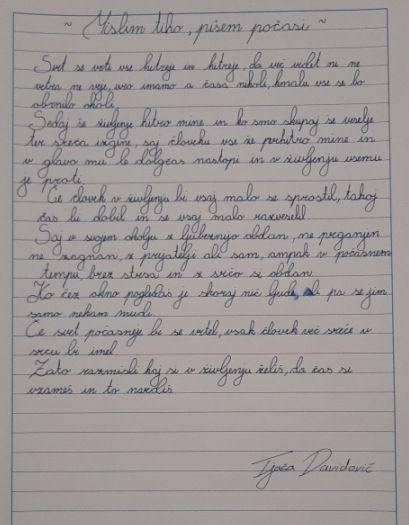 ~ Mislim tiho, pišem počasi ~
Svet se vrti vse hitreje in hitreje, da več videt ni ne
vetra ne veje, uro imamo a časa nikoli, kmalu vse se bo
obrnilo okoli,
Sedaj še življenje hitro mine in ko smo skupaj se veselje
ter sreča vžgine, saj človeku vse že prehitro mine in
v glavo mu le dolgčas nastopi in v življenju vsemu
je proti.
Če človek v življenju bi vsaj malo se sprostil, takoj
čas bi dobil in se vsaj malo razveselil.
Saj v svojem okolju z ljubeznijo obdan, ne preganjen
ne zagnan, z prijatelji ali sam, ampak v počasnem
tempu, brez stresa in z srčo si obdan.
Ko čez okno pogledaš je skoraj nič ljudi, ali pa se jim
samo nekam mudi.
Če svet počasneje bi se vrtel, vsak človek več sreče v
srcu bi imel.
Zato razmisli kaj si v življenju želiš, da čas si
vzameš in to narediš.
Tjaša Davidović